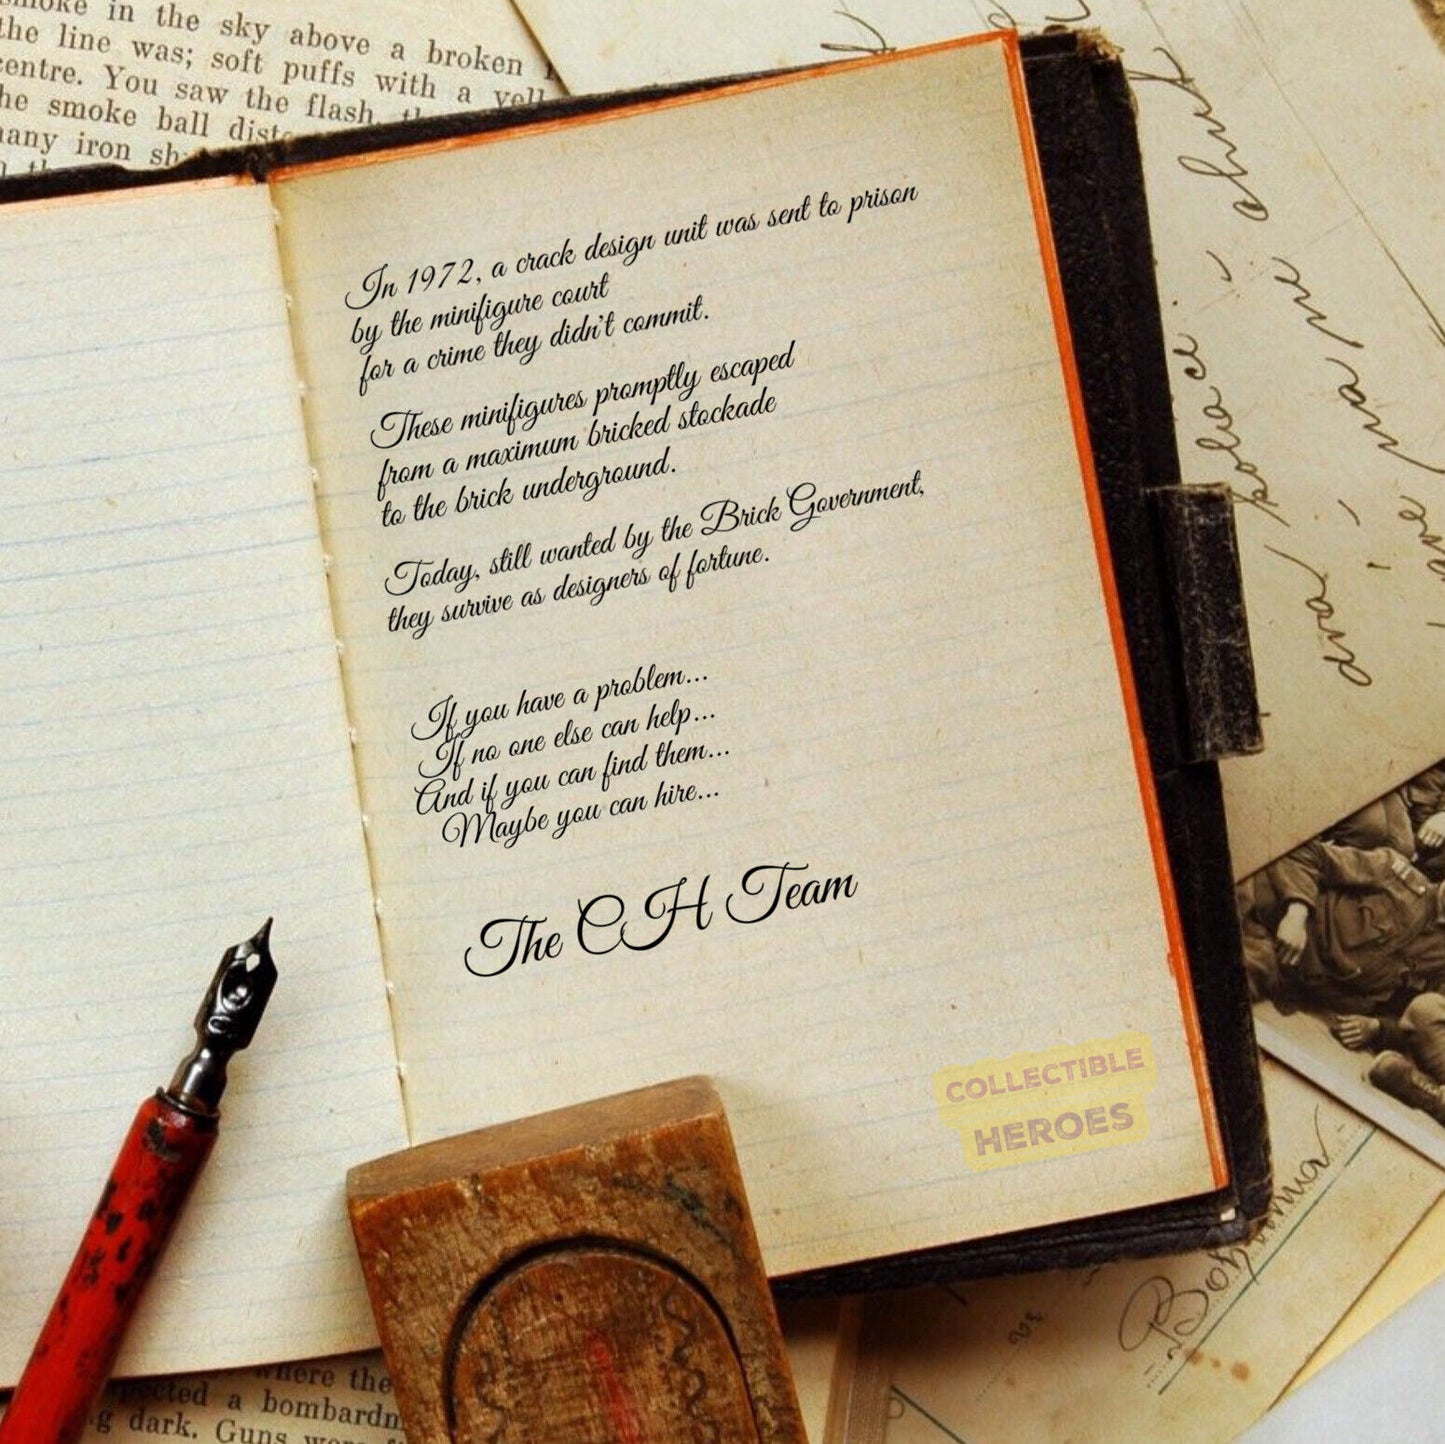 smoke in the sky above a broken
the line was; soft puffs with a
centre. You saw the flash,
he smoke ball
many iron
In 1972, a crack design unit was sent to prison
by the minifigure court
for a crime they didn't commit.
These minifigures promptly escaped
from a maximum bricked stockade
to the brick underground.
Today, still wanted by the Brick Government,
they survive as designers of fortune.
If you have a problem...
If no one else can help...
And if you can find them...
Maybe you can hire...
The CH Team
COLLECTIBLE
HEROES
where the
a bombardm
dark. Guns